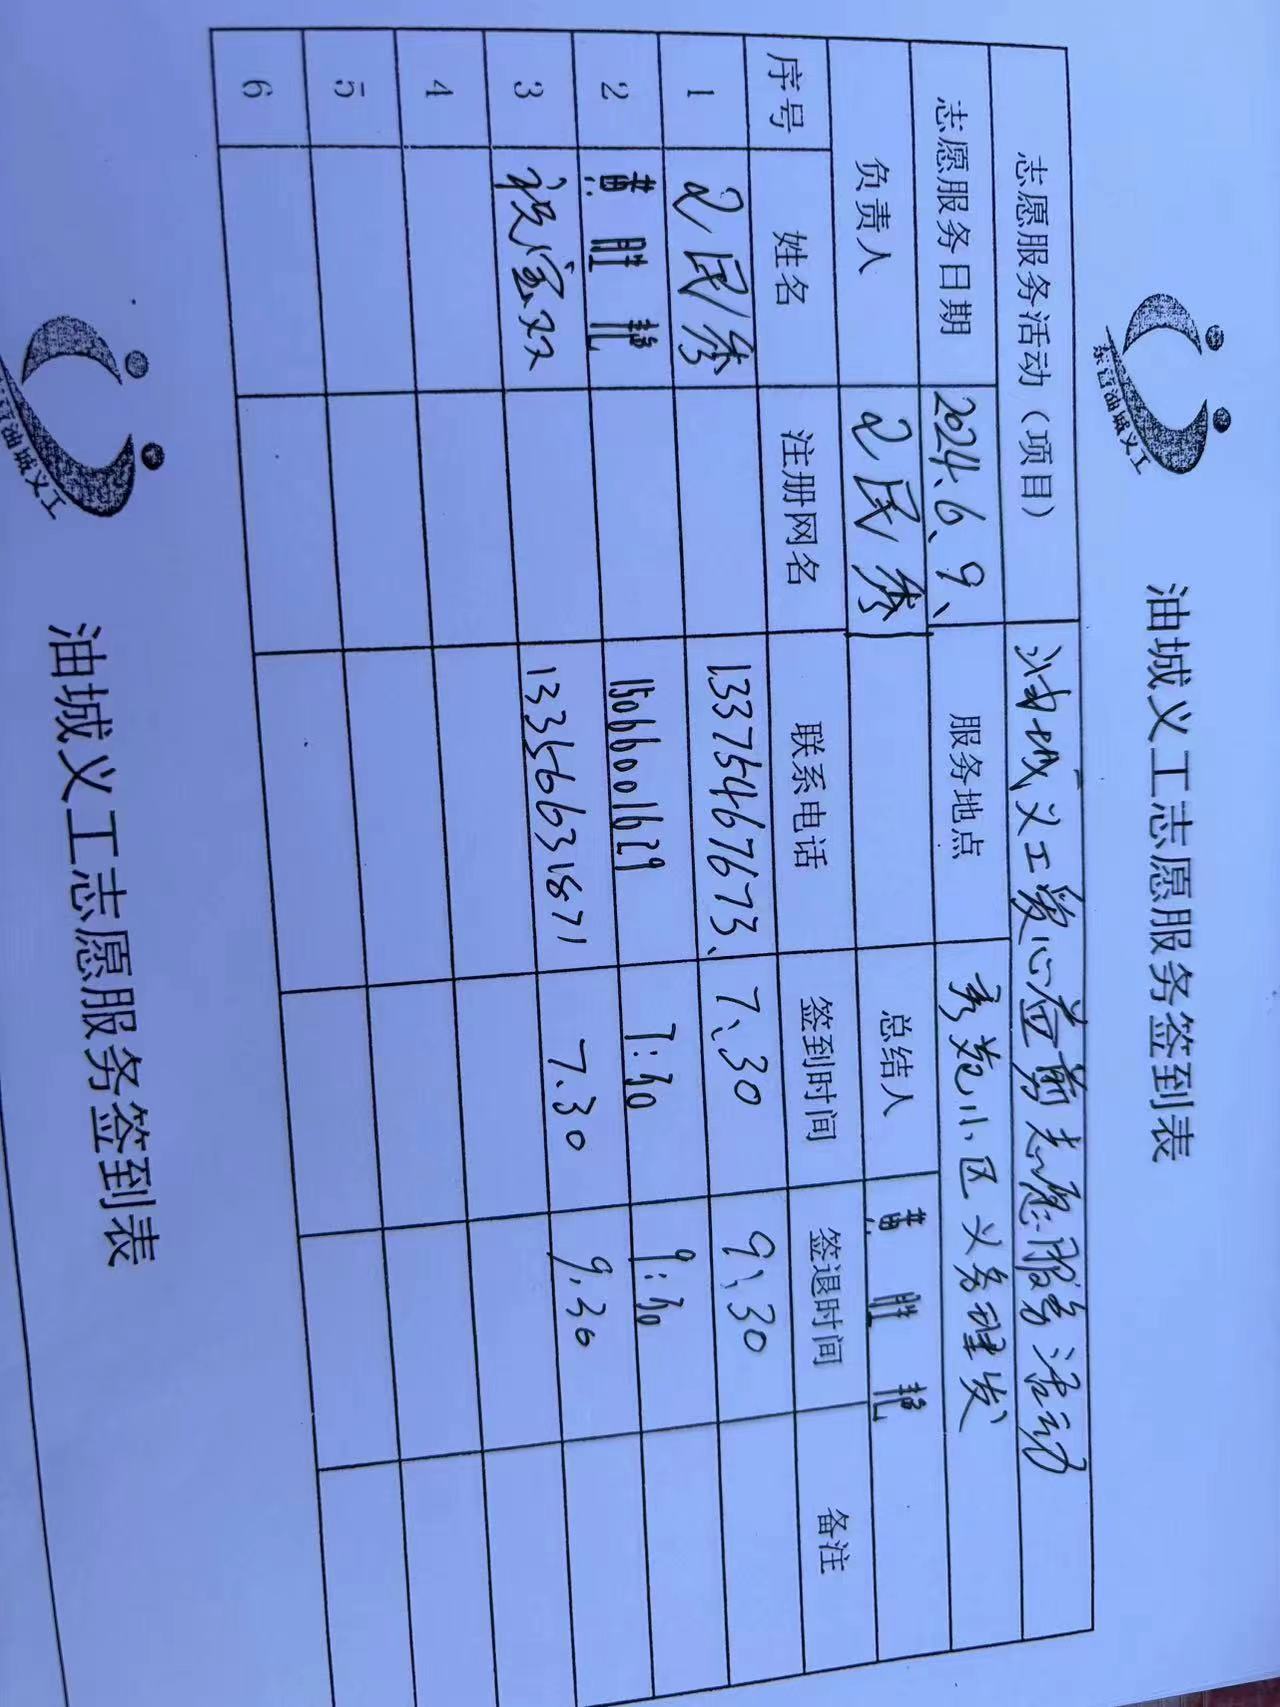 油城义工志愿服务签到表
志愿服务活动（项目） 油城义工爱心益剪志愿服务活动
志愿服务日期 2024.6、9、 服务地点 秀苑小区义务理发
负责人 民秀 总结人 黄胜艳
序号 姓名 注册网名 联系电话 签到时间 签退时间 备注
1 民秀 13375467673、 7、30 9、30
2 黄胜艳 15066001629 7:30 9:30
3 13356631871 7.30 9.30
4
5
6
油城义工
油城义工志愿服务签到表